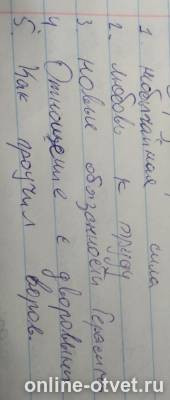 1. необычайная сила
2. любовь к труду
3. новые обязанности Герасим
4. Отношение с дворовыми
5. Как проучил воров.
online-otvet.ru